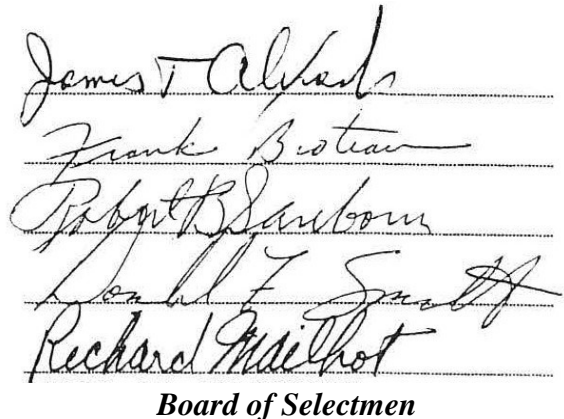 James T
Frank
Robert B Sanborn
Donald F Smith
Richard Mailhot
Board of Selectmen